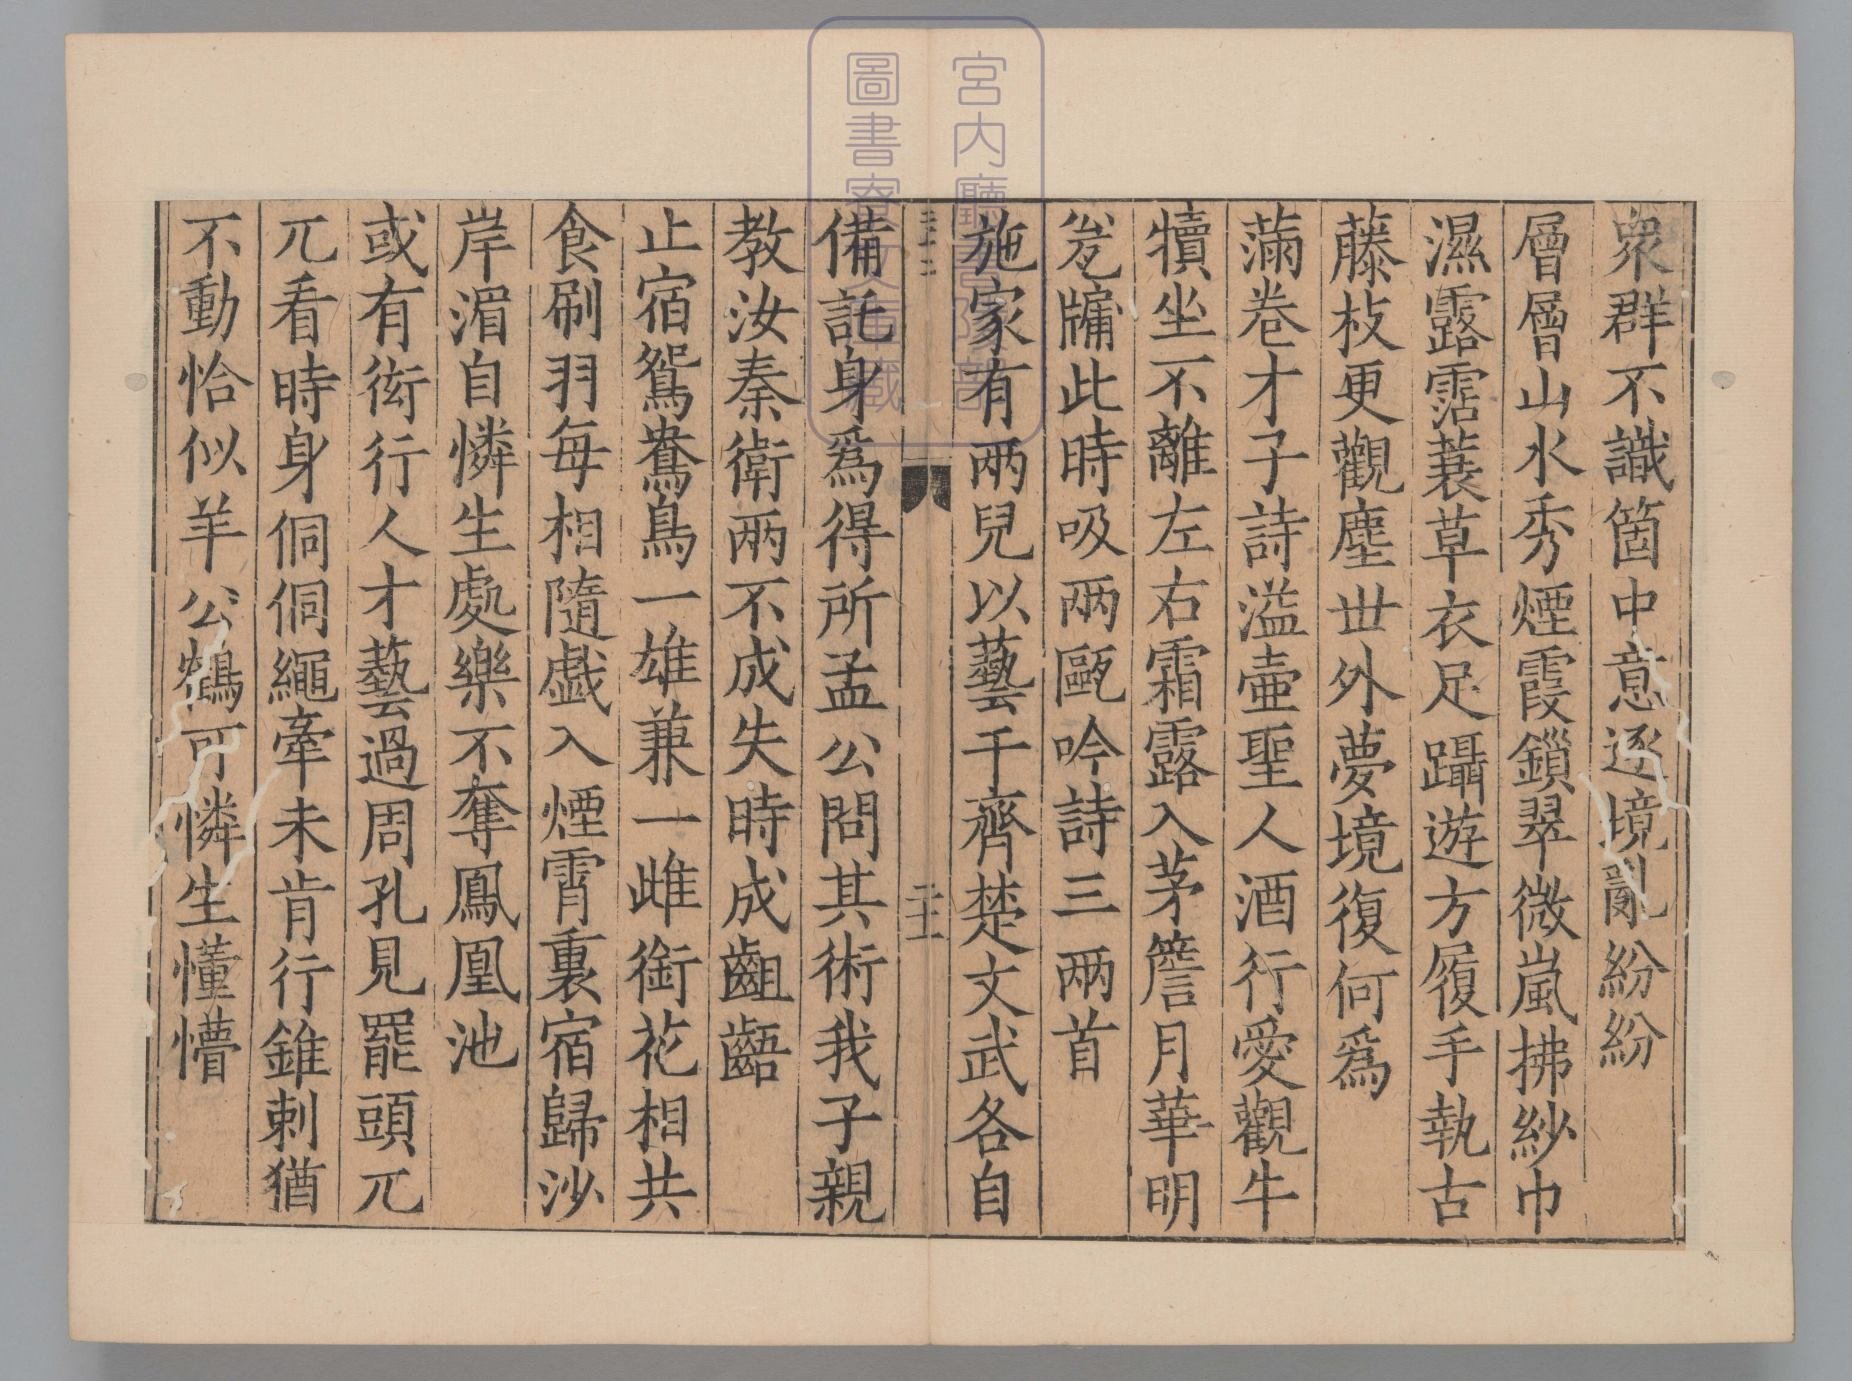 衆群不識箇中意逐境亂紛紛
層層山水秀煙霞鎖翠微嵐拂紗巾
濕露霑蓑草衣足躡遊方履手執古
藤枝更觀塵世外夢境復何爲
滿卷才子詩溢壺聖人酒行愛觀牛
犢坐不離左右霜露入茅簷月華明
瓮牖此時吸兩甌吟詩三兩首
施家有兩兒以藝干齊楚文武各自
備託身爲得所孟公問其術我子親
教汝秦衛兩不成失時成齟齬
止宿鴛鴦鳥一雄兼一雌銜花相共
食刷羽每相隨戲入煙霄裏宿歸沙
岸湄自憐生處樂不奪鳳凰池
或有衒行人才藝過周孔見罷頭兀
兀看時身侗侗繩牽未肯行錐刺猶
不動恰似羊公鶴可憐生懂懵
宮内廳書陵部
圖書寮文庫藏